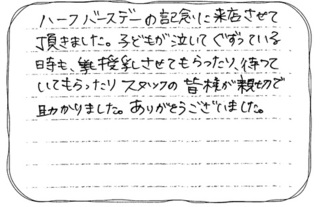 ハーフバースデーの記念に来店させて
頂きました。子どもが泣いてぐずっている
時も、授乳させてもらったり、待って
いてもらったりスタッフの皆様が親切で
助かりました。ありがとうございました。